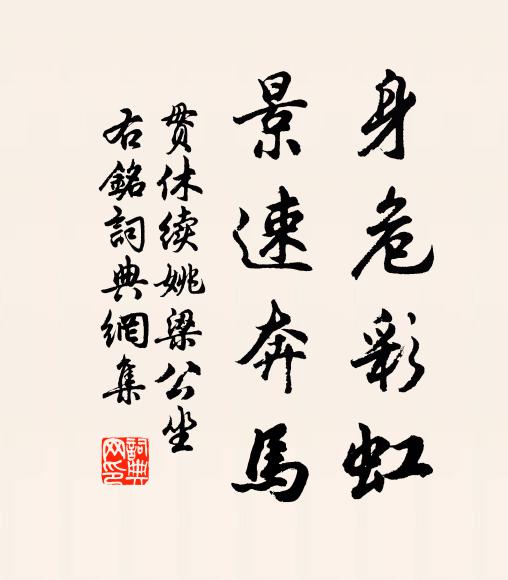 身危彩虹
景速奔馬
贯休续姚梁公坐
右銘詞典網集
詞典
网印